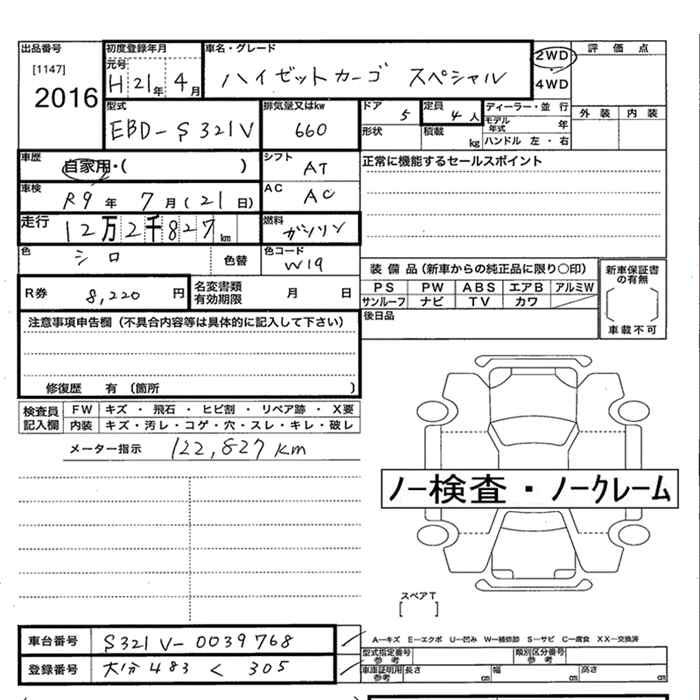 出品番号 初度登録年月 車名・グレード 2WD 評価点
[1147] 元号
2016 H 21年 4月 ハイゼットカーゴ スペシャル ・ 4WD
型式 排気量又はkw ドア 5 定員 4人 ディーラー・並行 外装 内装
EBD-S321V 660 形状 積載 kg モデル年式 年
ハンドル 左・右
車歴 自家用・( ) シフト AT 正常に機能するセールスポイント
車検 R9年 7月(21日) AC AC
走行 12万2千827km 燃料 ガソリン
色 シロ 色替 色コード W19
装備品(新車からの純正品に限り○印) 新車保証書の有無
R券 8,220円 名変書類有効期限 月 日 PS PW ABS エアB アルミW
サンルーフ ナビ TV カワ
注意事項申告欄(不具合内容等は具体的に記入して下さい) 後日品 車載不可
修復歴 有 (箇所 )
検査員記入欄 FW キズ・飛石・ヒビ割・リペア跡・X要
内装 キズ・汚レ・コゲ・穴・スレ・キレ・破レ
メーター指示 122,827km
ノー検査・ノークレーム
スペアT
[ ]
車台番号 S321V-0039768 A―キズ E―エクボ U―凹み W―補修跡 S―サビ C―腐食 XX―交換済
型式指定番号 参考 類別区分番号 参考
登録番号 大分 483 く 305 車庫証明用参考 長さ cm 幅 cm 高さ cm